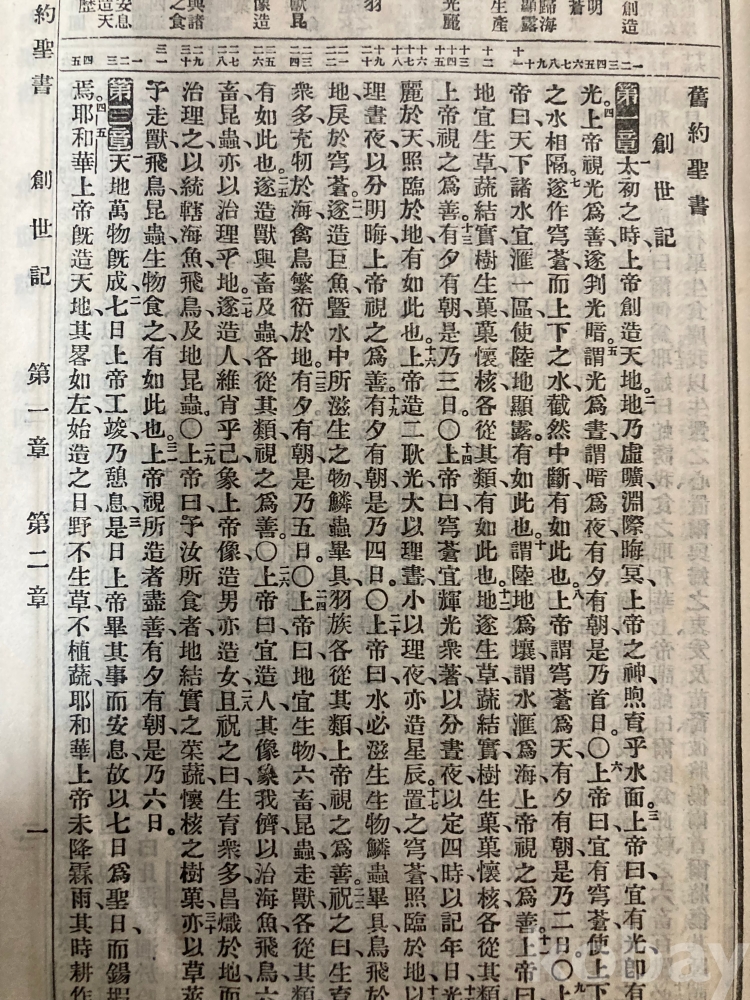 舊約聖書
創世記
第一章 一太初之時、上帝創造天地。二地乃虛曠、淵際晦冥、上帝之神煦育乎水面。三上帝曰、宜有光、卽有
光。四上帝視光爲善、遂判光暗。五謂光爲晝、謂暗爲夜、有夕有朝、是乃首日。〇六上帝曰、宜有穹蒼、使上下
之水相隔。七遂作穹蒼、而上下之水截然中斷、有如此也。八上帝謂穹蒼爲天、有夕有朝、是乃二日。〇九上
帝曰、天下諸水宜滙一區、使陸地顯露、有如此也。十謂陸地爲壤、謂水滙爲海、上帝視之爲善。十一上帝曰、
地宜生草蔬結實、樹生菓、菓懷核、各從其類、有如此也。十二地遂生草蔬結實、樹生菓、菓懷核、各從
上帝視之爲善。十三有夕有朝、是乃三日。〇十四上帝曰、穹蒼宜輝光衆著、以分晝夜、以定四時、以記年日、光
麗於天、照臨於地、有如此也。十六上帝造二耿光、大以理晝、小以理夜、亦造星辰。十七置之穹蒼、照臨於地
理晝夜、以分明晦、上帝視之爲善。十九有夕有朝、是乃四日。〇二十上帝曰、水必滋生生物、鱗蟲畢具、鳥飛於
地、戾於穹蒼。二一遂造巨魚、曁水中所滋生之物、鱗蟲畢具、羽族各從其類、上帝視之爲善。二二祝之曰、生育
衆多、充牣於海、禽鳥繁衍於地。二三有夕有朝、是乃五日。〇二四上帝曰、地宜生物、六畜昆蟲走獸、各從其類
有如此也。二五遂造獸與畜及蟲、各從其類、視之爲善。〇二六上帝曰、宜造人、其像象我儕、以治海魚飛鳥六
畜昆蟲、亦以治理乎地。二七遂造人、維肖乎己、象上帝像、造男亦造女。二八且祝之曰、生育衆多、昌熾於地、而
治理之、以統轄海魚飛鳥、及地昆蟲。〇二九上帝曰、予汝所食者、地結實之菜蔬、懷核之樹菓。三十亦以草
予走獸飛鳥昆蟲生物食之、有如此也。三一上帝視所造者盡善、有夕有朝、是乃六日。
第二章 一天地萬物旣成。二七日上帝工竣、乃憩息。三是日上帝畢其事而安息、故以七日爲聖日、而錫
焉。四五耶和華上帝旣造天地、其畧如左、始造之日、野不生草、不植蔬、耶和華上帝未降霖雨、其時耕作
約聖書 創世記 第一章 第二章 一